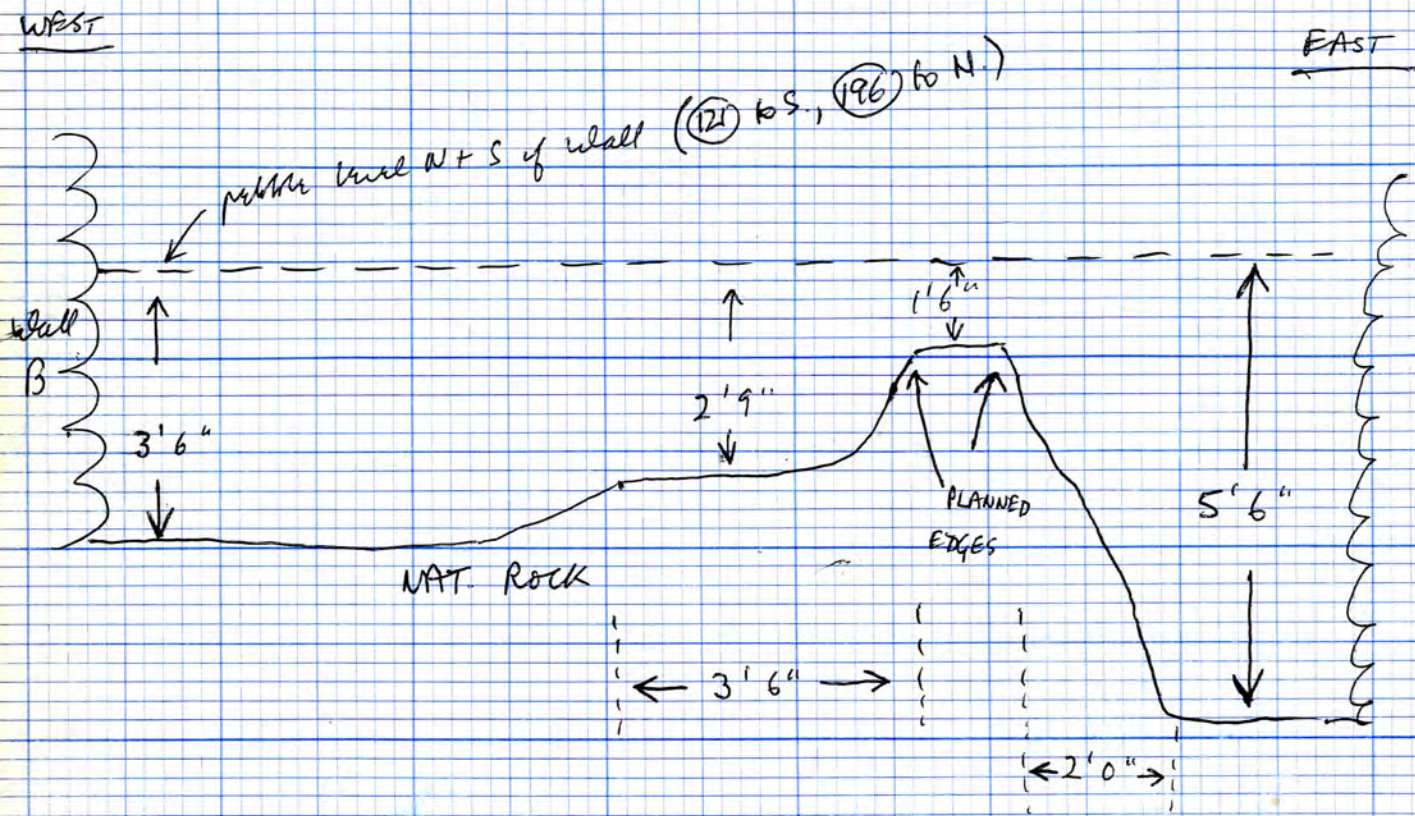 WEST
EAST
pebble level N + S of wall (121 to S., 196 to N.)
1'6"
Wall
B
2'9"
3'6"
PLANNED
EDGES
5'6"
NAT. ROCK
3'6"
2'0"